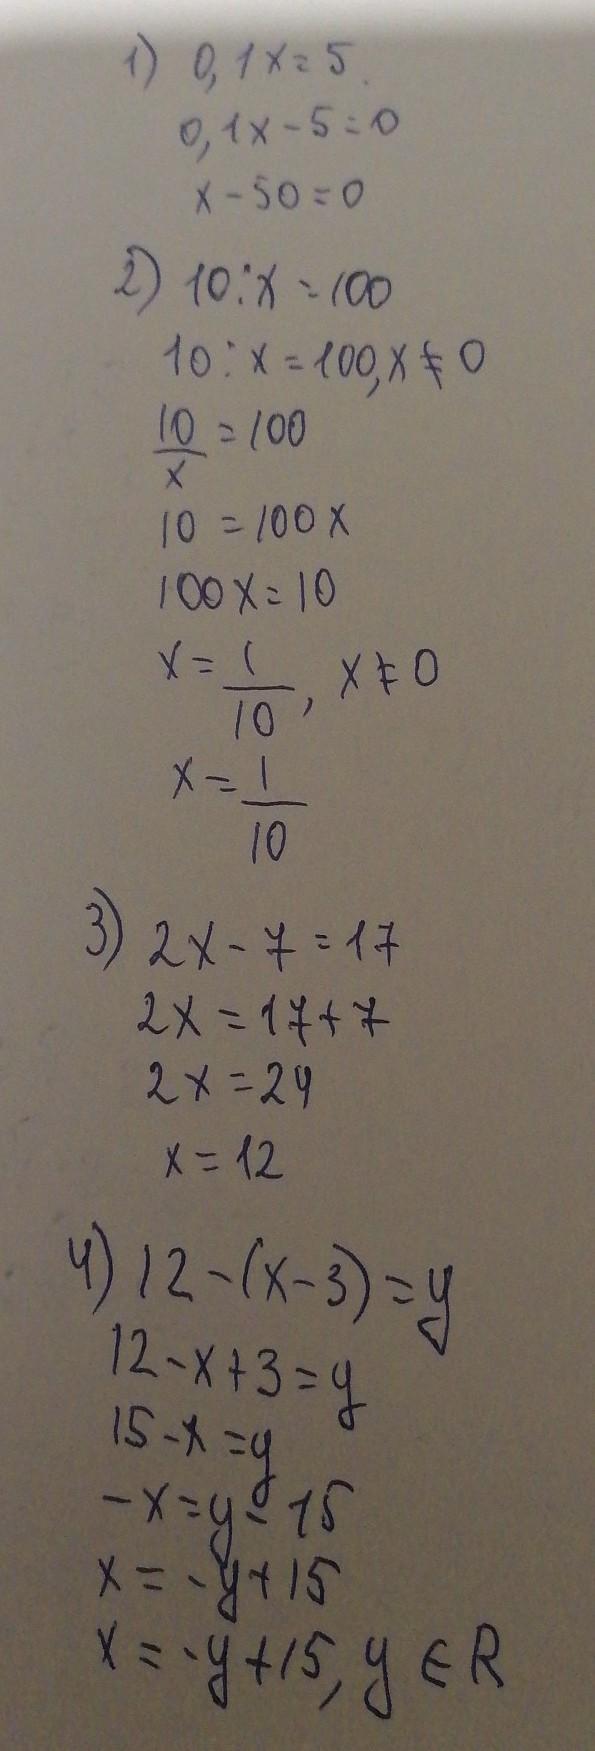 1) 0,1x=5
0,1x-5=0
x-50=0
2) 10:x=100
10:x=100, x≠0
10/x=100
10=100x
100x=10
x=1/10, x≠0
x=1/10
3) 2x-7=17
2x=17+7
2x=24
x=12
4) 12-(x-3)=y
12-x+3=y
15-x=y
-x=y-15
x=-y+15
x=-y+15, y∈R